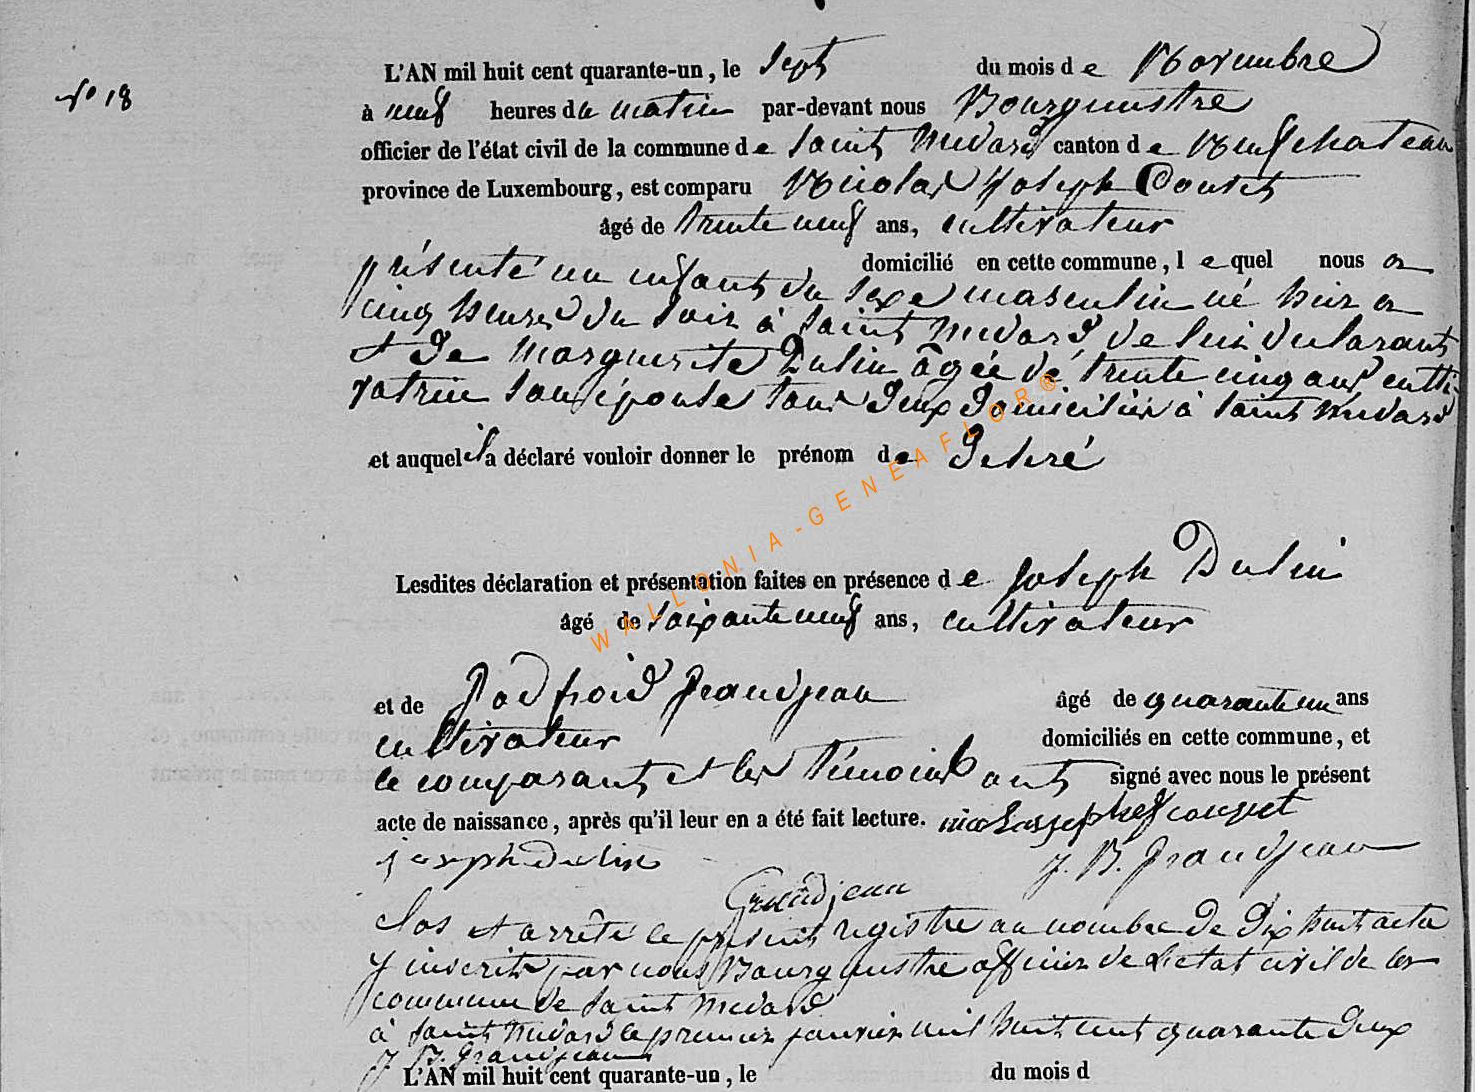 N° 18
L'AN mil huit cent quarante-un, le sept du mois de Novembre
à neuf heures du matin par-devant nous Bourgmestre
officier de l'état civil de la commune de Saint Médard canton de Neufchateau
province de Luxembourg, est comparu Nicolas Joseph
âgé de trente neuf ans, cultivateur
domicilié en cette commune, lequel nous a
présenté un enfant du sexe masculin né hier a
cinq heures du soir à Saint Médard de lui declarant
et de Marguerite Dulin âgée de trente cinq ans culti
vatrice son épouse tous deux domiciliés à Saint Médard
et auquel il a déclaré vouloir donner le prénom de Désiré
Lesdites déclaration et présentation faites en présence de Joseph Dulin
âgé de soixante neuf ans, cultivateur
et de Godfroid Grandjean âgé de quarante un ans
cultivateur domiciliés en cette commune, et
le comparant et les témoins ont signé avec nous le présent
acte de naissance, après qu'il leur en a été fait lecture.
joseph dulin J. B. Grandjean
Grandjean
Clos et arrêté le présent registre au nombre de dix huit acte
y inscrits par nous Bourgmestre officier de l'etat civil de la
commune de Saint Médard
à Saint Médard le premier janvier mil huit cent quarante deux
J. B. Grandjean
L'AN mil huit cent quarante-un, le du mois d
WALLONIA-GENEAFLOR®